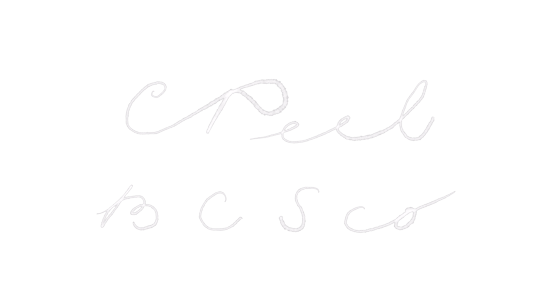 C Peel
B C S co